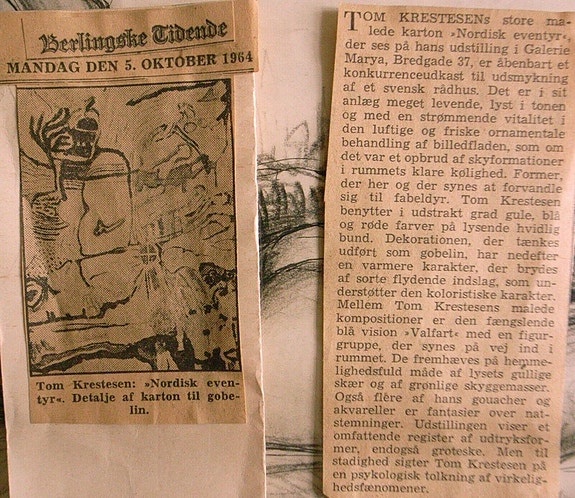 Berlingske Tidende
MANDAG DEN 5. OKTOBER 1964
Tom Krestesen: »Nordisk even-
tyr«. Detalje af karton til gobe-
lin.
TOM KRESTESENs store ma-
lede karton »Nordisk eventyr«,
der ses på hans udstilling i Galerie
Marya, Bredgade 37, er åbenbart et
konkurrenceudkast til udsmykning
af et svensk rådhus. Det er i sit
anlæg meget levende, lyst i tonen
og med en strømmende vitalitet i
den luftige og friske ornamentale
behandling af billedfladen, som om
det var et opbrud af skyformationer
i rummets klare kølighed. Former,
der her og der synes at forvandle
sig til fabeldyr. Tom Krestesen
benytter i udstrakt grad gule, blå
og røde farver på lysende hvidlig
bund. Dekorationen, der tænkes
udført som gobelin, har nedefter
en varmere karakter, der brydes
af sorte flydende indslag, som un-
derstøtter den koloristiske karakter.
Mellem Tom Krestesens malede
kompositioner er den fængslende
blå vision »Valfart« med en figur-
gruppe, der synes på vej ind i
rummet. De fremhæves på hemme-
lighedsfuld måde af lysets gullige
skær og af grønlige skyggemasser.
Også flere af hans gouacher og
akvareller er fantasier over nat-
stemninger. Udstillingen viser et
omfattende register af udtryksfor-
mer, endogså groteske. Men til
stadighed sigter Tom Krestesen på
en psykologisk tolkning af virkelig-
hedsfænomener.